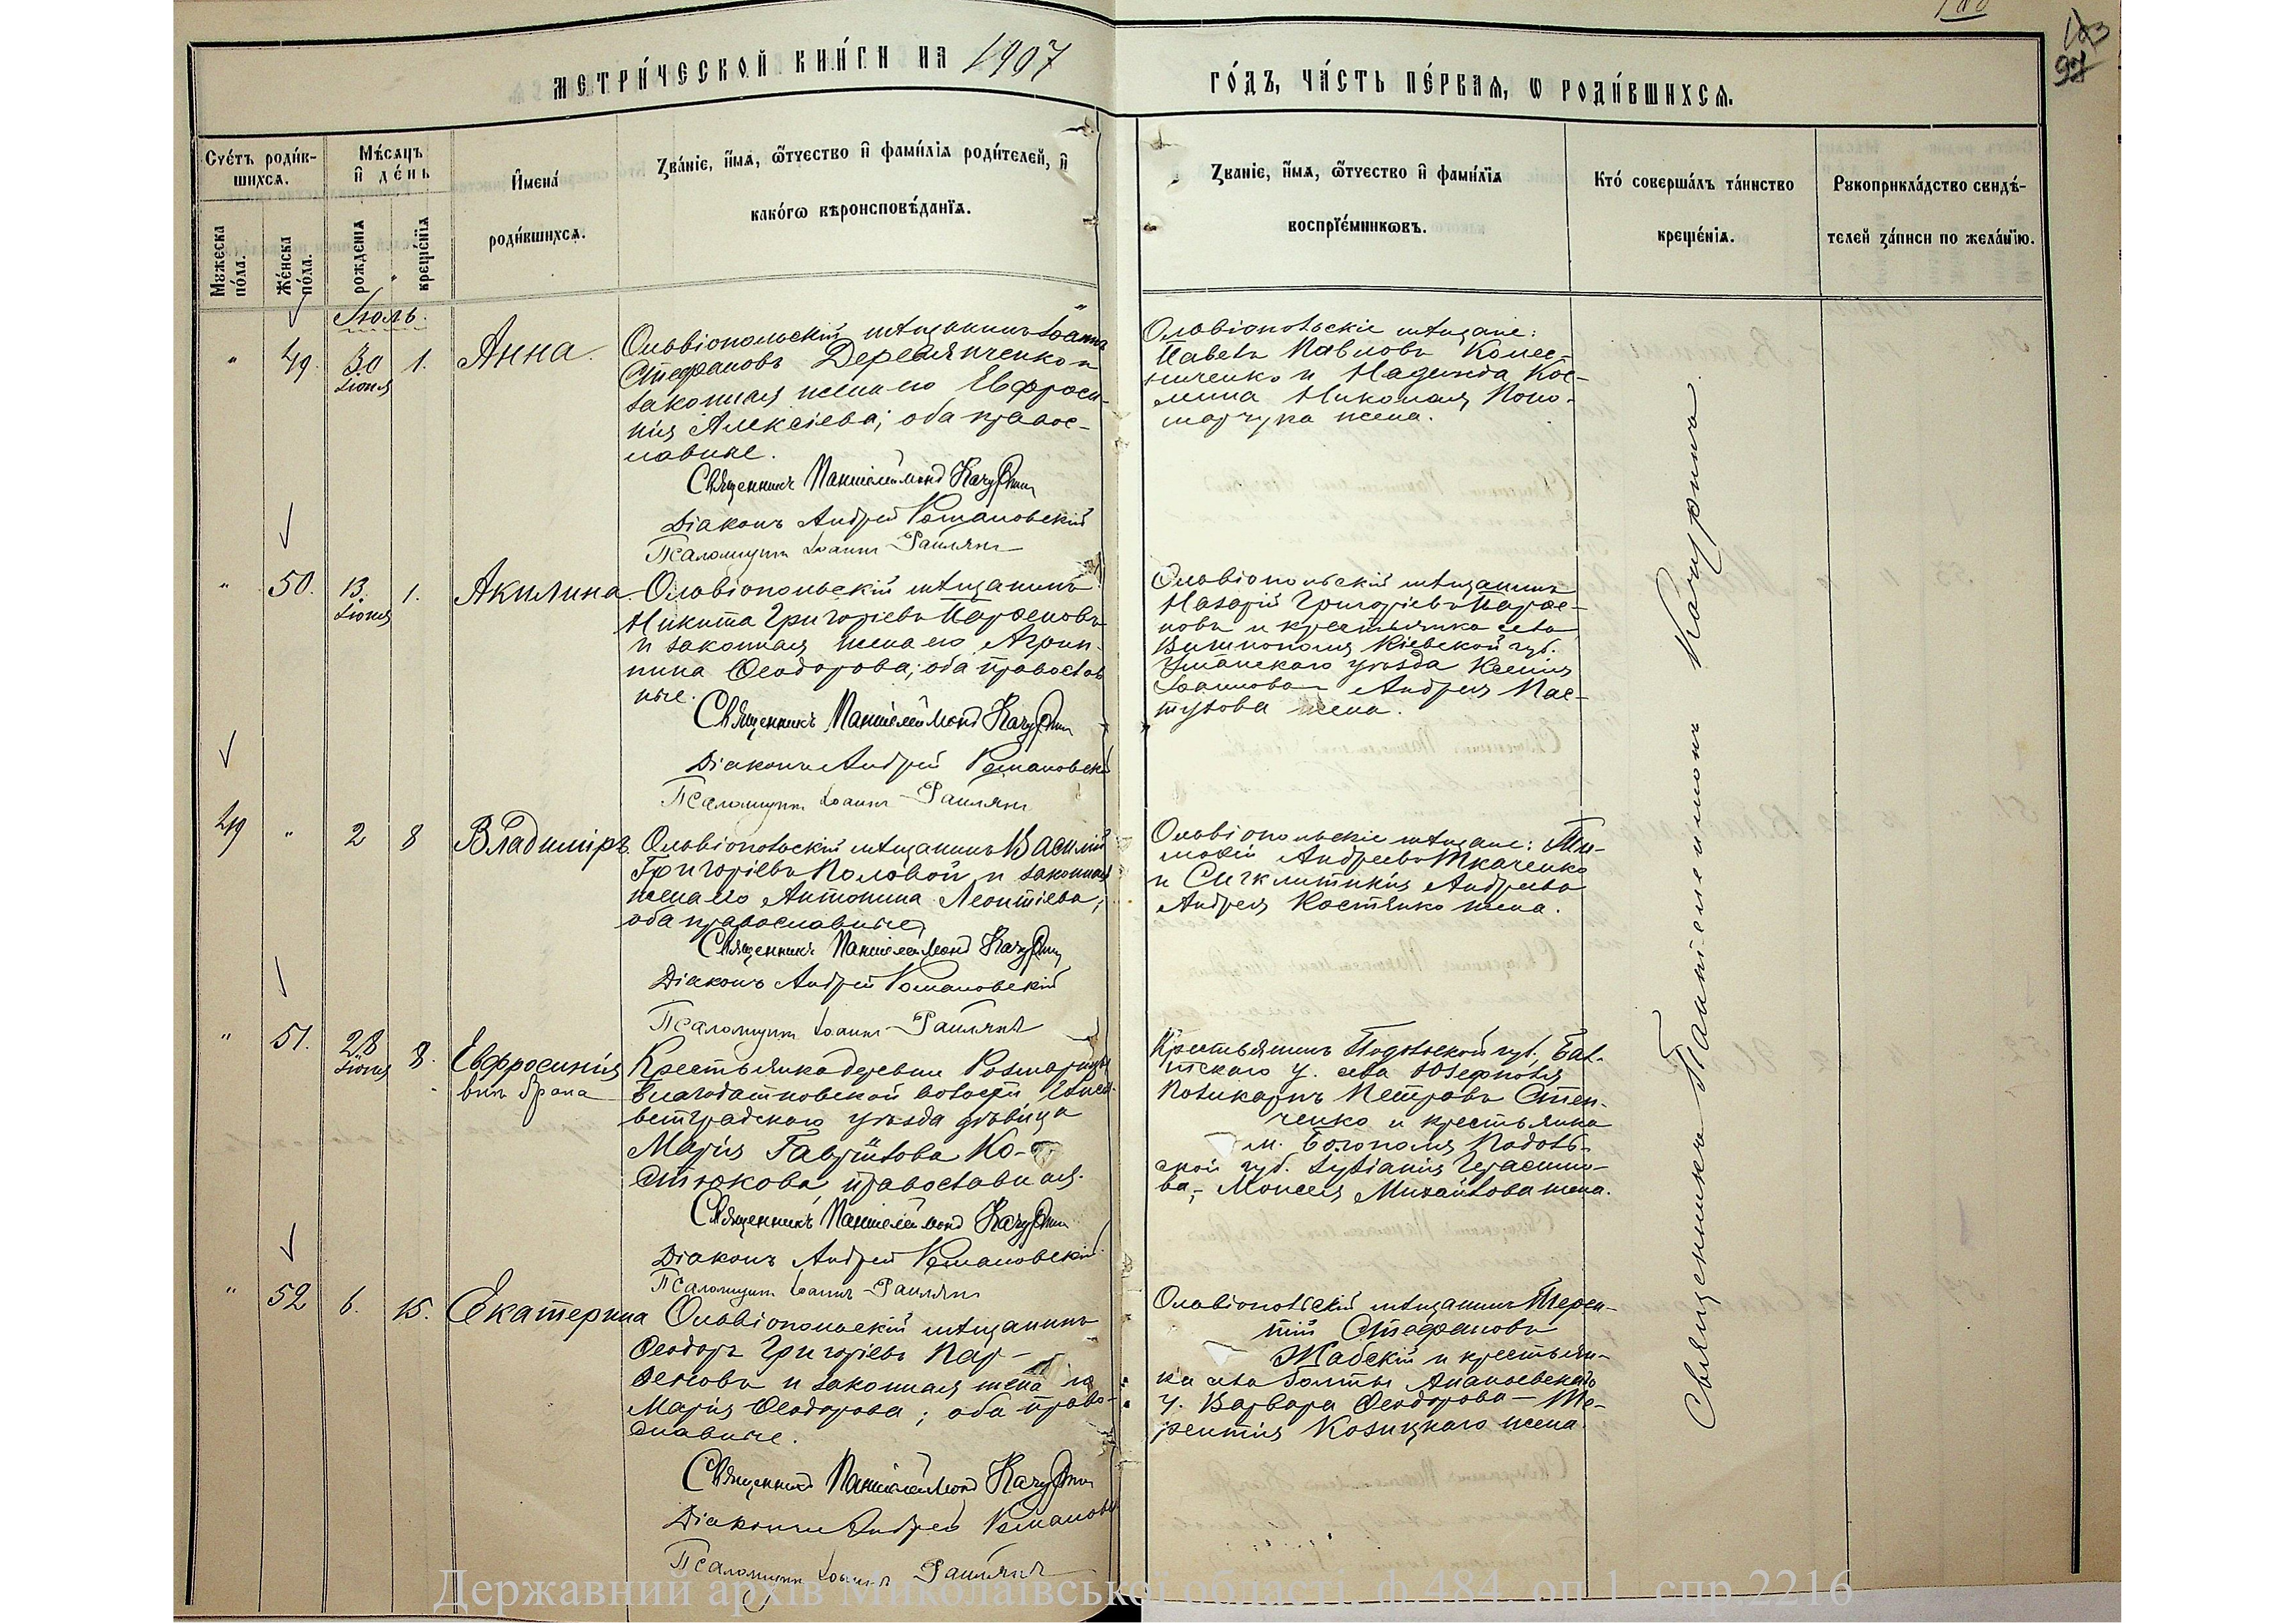 МЕТРИ́ЧЕСКОЙ КНИ́ГИ НА 1907
ГО́ДЪ, ЧА́СТЬ ПЕ́РВАЯ, Ѡ РОДИ́ВШИХСЯ.
103
97
Сче́тъ роди́в-
шихся.
Мѣ́сяцъ
и҆ де́нь
Мужеска по́ла.
Же́нска по́ла.
рожденія
креще́нїя
И҆мена́
роди́вшихся.
Зва́нїе, и҆́мя, ѻ҆́тчество и҆ фами́лїя роди́телей, и҆
како́гѡ вѣроисповѣ́данїя.
Званїе, и҆́мя, ѻ҆́тчество и҆ фами́лїя
воспрїе́мниковъ.
Кто́ соверша́лъ та́инство
креще́нїя.
Рукоприкла́дство свидѣ́-
телей за́писи по жела́нїю.
Іюль.
" 49. 30 Іюня 1. Анна.
Ольвіопольскій мѣщанинъ Іоаннъ
Стефановъ Деревянченко и
законная жена его Евфроси-
нія Алексіева; оба правос-
лавные.
Священникъ Пантелеймонъ Качурин
Діаконъ Андрей Романовскій
Псаломщикъ Іоаннъ
Ольвіопольскіе мѣщане:
Павелъ Павловъ Колес-
ниченко и Надежда Кос-
мина Николая Поно-
марчука жена.
" 50. 13. Іюня 1. Акилина
Ольвіопольскій мѣщанинъ
Никита Григорьевъ Парѳеновъ
и законная жена его Агрип-
пина Ѳеодорова; оба православ
ные.
Священникъ Пантелеймонъ Качурин
Діаконъ Андрей Романовскій
Псаломщикъ Іоаннъ
Ольвіопольскій мѣщанинъ
Назарій Григорьевъ Парѳе-
новъ и крестьянка села
Кіевской губ.
Уманскаго уѣзда Ксенія
Іоаннова Андрея Пас-
тухова жена.
49 " 2 8 Владиміръ
Ольвіопольскій мѣщанинъ Василій
Григоріевъ Половой и законная
жена его Антонина Леонтіева;
оба православные
Священникъ Пантелеймонъ Качурин
Діаконъ Андрей Романовскій
Псаломщикъ Іоаннъ
Ольвіопольскіе мѣщане: Ти-
моѳей Андреевъ Ткаченко
и Сигклитикія Андреева
Андрея Костенко жена.
" 51. 28 Іюня 8. Евфросинія
внѣ брака
Крестьянка деревни
Благодатновской волости, Елиса-
ветградскаго уѣзда дѣвица
Марія Гавріилова Ко-
стюкова, православная.
Священникъ Пантелеймонъ Качурин
Діаконъ Андрей Романовскій
Псаломщикъ Іоаннъ
Крестьянинъ Подольской губ., Бал-
тскаго у. села Юзефполя
Поликарпъ Петровъ Степ-
ченко и крестьянка
м. Богополя Подоль-
ской губ. Іуліанія Герасимо-
ва, Моисея Михайлова жена.
" 52 6. 15. Екатерина
Ольвіопольскій мѣщанинъ
Ѳеодоръ Григорьевъ Пар-
ѳеновъ и законная жена его
Марія Ѳеодорова; оба право-
славные.
Священникъ Пантелеймонъ Качурин
Діаконъ Андрей Романовскій
Псаломщикъ Іоаннъ
Ольвіопольскій мѣщанинъ Терен-
тій Стефановъ
Жабскій и крестьян-
ка села Ананьевскаго
у. Варвара Ѳеодорова – Те-
рентія Козицкаго жена.
Священникъ Пантелеимонъ Качуринъ
Державний архів Миколаївської області, ф.484, оп.1, спр.2216